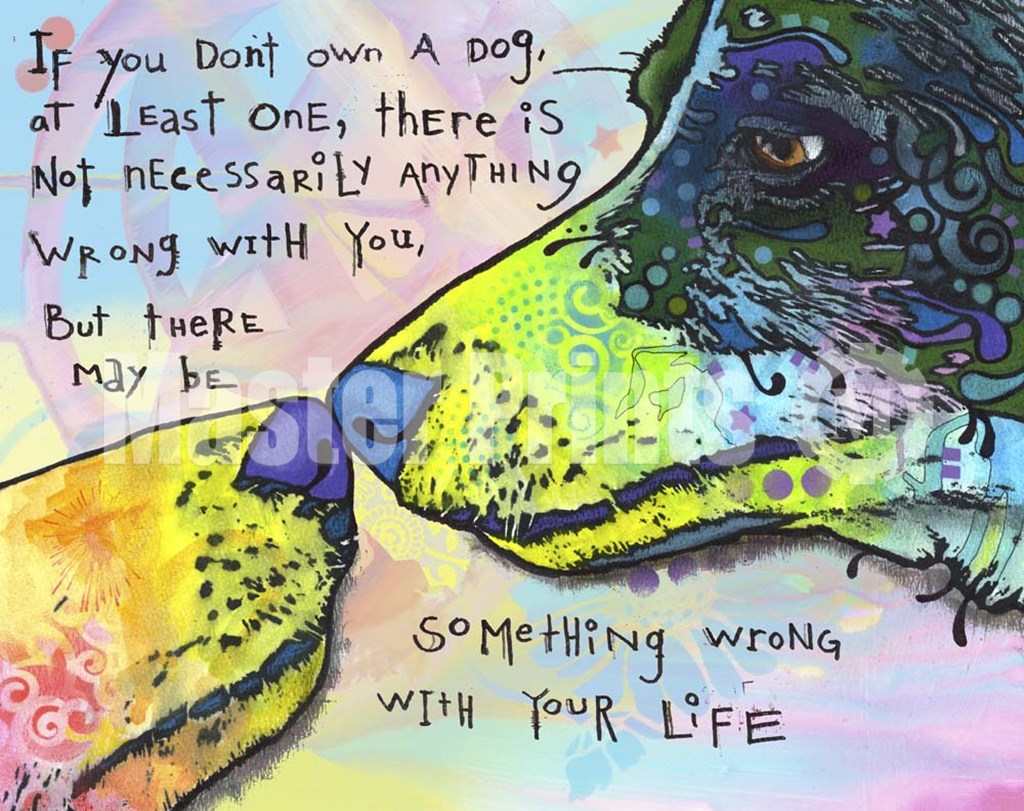 If you Don't own A Dog,
at Least one, there is
Not necessarily Anything
wrong with you,
But there
may be
Master Prints
something wrong
with your Life